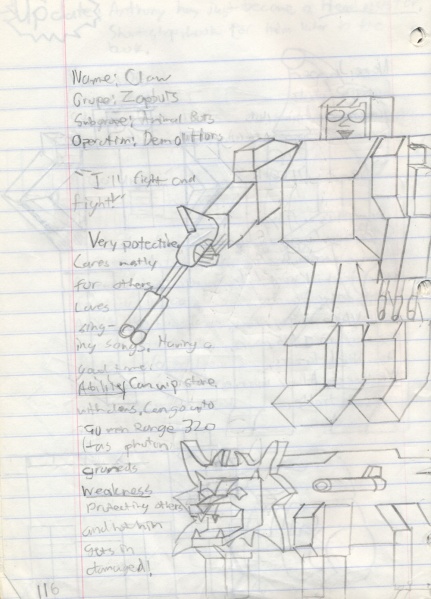 Update
Anthony has just become a
Name: Claw
Grupe: Zapbuts
Subgrupe: Animal Bots
Operation: Demolitions
"I'll fight and
fight!"
Very potective
Cares mostly
for others
Loves
sing-
ing songs. Having a
good time.
Ability Can rip stone
with claws, Can go up to
90 mph Range 320
Has photon
weakness
Protecting others
and
gets in
damaged!
116